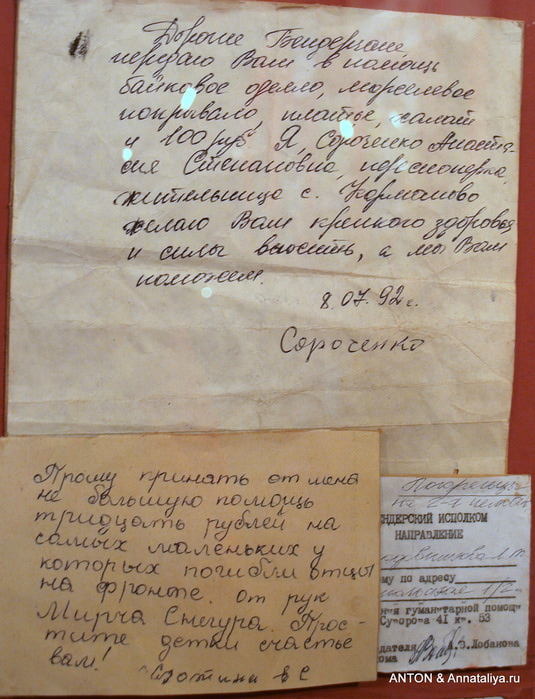 Дорогие Бендерчане
передаю Вам в помощь
байковое одеяло, марселевое
покрывало, платье, халат
и 100 руб Я, Сороченко Анаста-
сия Степановна, пенсионерка,
жительница с. Карманово
желаю Вам крепкого здоровья
и силы выстоять, а мы Вам
поможем.
8.07.92 г.
Сороченко
Прошу принять от меня
не большую помощь
тридцать рублей на
самых маленьких у
которых погибли отцы
на фронте. от рук
Мирча Снегура. Прос-
тите детки счастье
вам!
ЕНДЕРСКИЙ ИСПОЛКОМ
НАПРАВЛЕНИЕ
му по адресу
ния гуманитарной помощи
Суворова 41 кв. 53
дателя А.З.Лобанова
кома
ANTON & Annataliya.ru